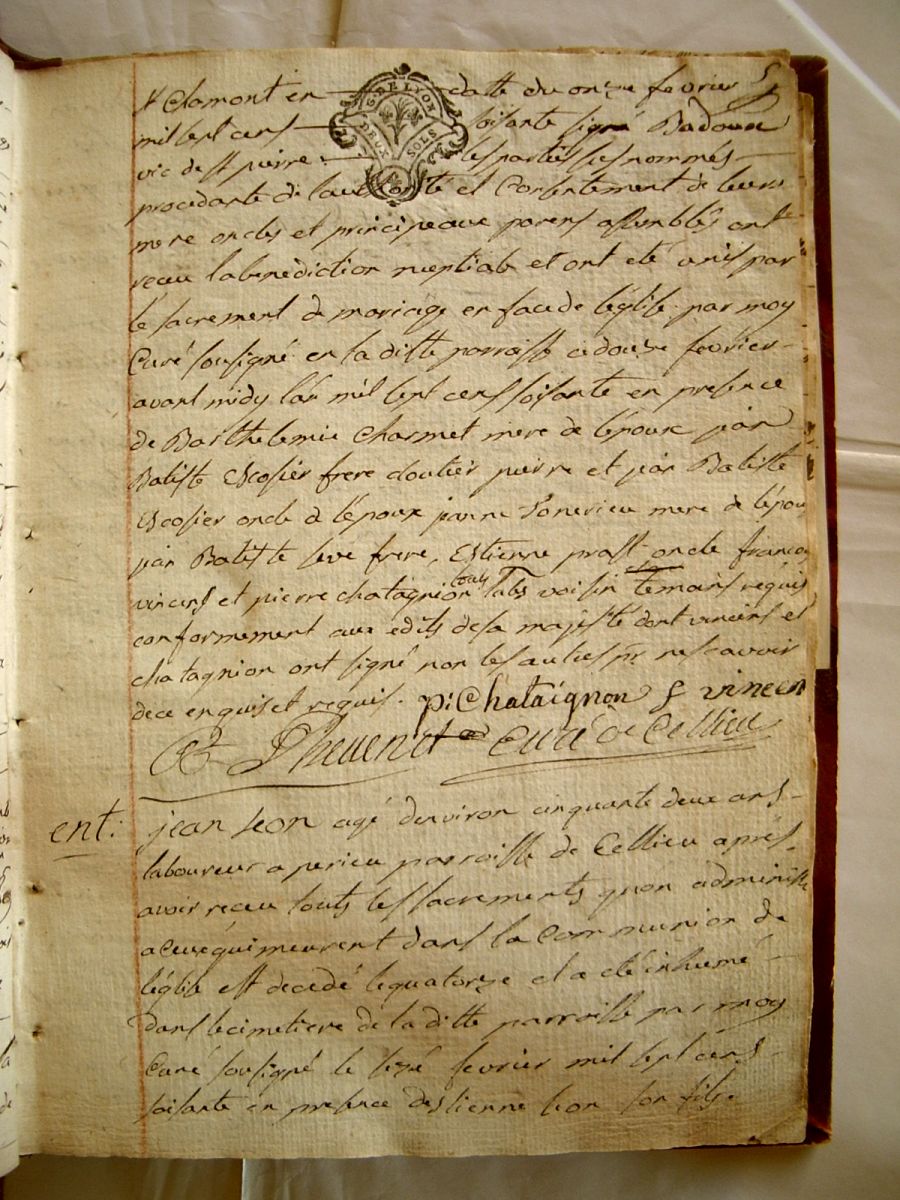 St Chamont en datte du onze fevrier
G. DE LYON
DEUX SOLS
mil sept cens soisante signé Badoux
vic de st pierre les parties sus nommés
procedante de l'authorité et Consentement de leurs
mere oncles et principeaux parens assemblés ont
receu la benediction nuptiale et ont eté unis par
le sacrement de mariage en face de l'église par moy
Curé sousigné en la ditte parroisse ce douze fevrier
avant midy l'an mil sept cens soisante en presence
de Barthelemie Charmet mere de l'epoux par
Batiste Escosier frere pierre et par Batiste
Escosier oncle de l'epoux jeanne mere de l'epou
par Batiste seve frere, Estienne prast oncle franco
vincens et pierre chatagnion tous voisin temains requis
conformement aux edits de sa majesté dont vincens et
chatagnion ont signé non les autres pr ne scavoir
de ce enquis et requis. p: Chataignon f vincen
Thevenet Curé de Cellieu
ent: jean Leon agé denviron cinquante deux ans
laboureur a perieu parroisse de Cellieu aprés
avoir receu touts les sacrements quon administre
a ceux qui meurent dans la Communion de
l'église est decedé le quatorze et a eté inhumé
dans le cimetiere de la ditte parroisse par moy
Curé sousigné le sezé fevrier mil sept cens
soisante en presence destienne leon son fils.